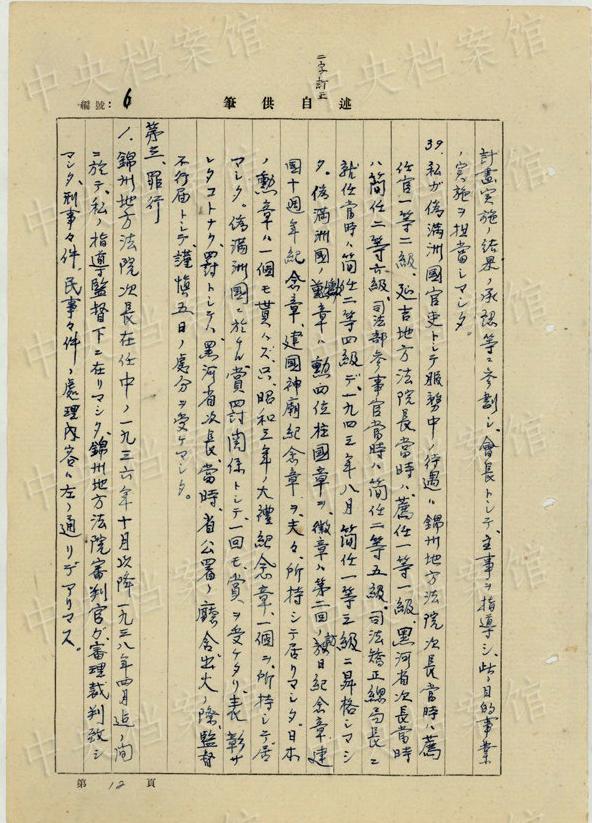 編號：6
述自供筆
二字訂正
計畫実施ノ結果ノ承認等ニ参劃シ、會長トシテ主事ヲ指導シ、此ノ目的事業
ノ実施ヲ担當シマシタ。
39. 私ガ偽満洲國官吏トシテ服務中ノ待遇ハ錦州地方法院次長當時ハ薦
任官一等二級、延吉地方法院長當時ハ薦任一等一級、黒河省次長當時
ハ簡任二等六級、司法部参事官當時ハ簡任二等五級、司法矯正總局長ニ
就任當時ハ簡任二等四級デ、一九四三年八月簡任一等三級ニ昇格シマシ
タ。偽満洲國ノ勲章ハ勲四位柱國章ヲ、徽章ハ第二回ノ訪日紀念章、建
國十週年紀念章、建國神廟紀念章ヲ、夫々所持シテ居リマシタ。日本
ノ勲章ハ一個モ貰ハズ、只昭和三年ノ大禮紀念章一個ヲ所持シテ居
マシタ。偽満洲國ニ於ケル賞罰関係トシテ、一回モ賞ヲ受ケタリ、表彰サ
レタコトナク、罰トシテハ、黒河省次長當時、省公署ノ廳舎出火ノ際、監督
不行届トシテ、謹慎五日ノ處分ヲ受ケマシタ。
第三、罪行
1. 錦州地方法院次長在任中ノ一九三六年十月以降一九三八年四月迄ノ間
ニ於テ、私ノ指導監督下ニ在リマシタ、錦州地方法院審判官ガ審理裁判致シ
マシタ、刑事々件、民事々件ノ處理内容ハ左ノ通リデアリマス。
第 12 頁
中央档案馆